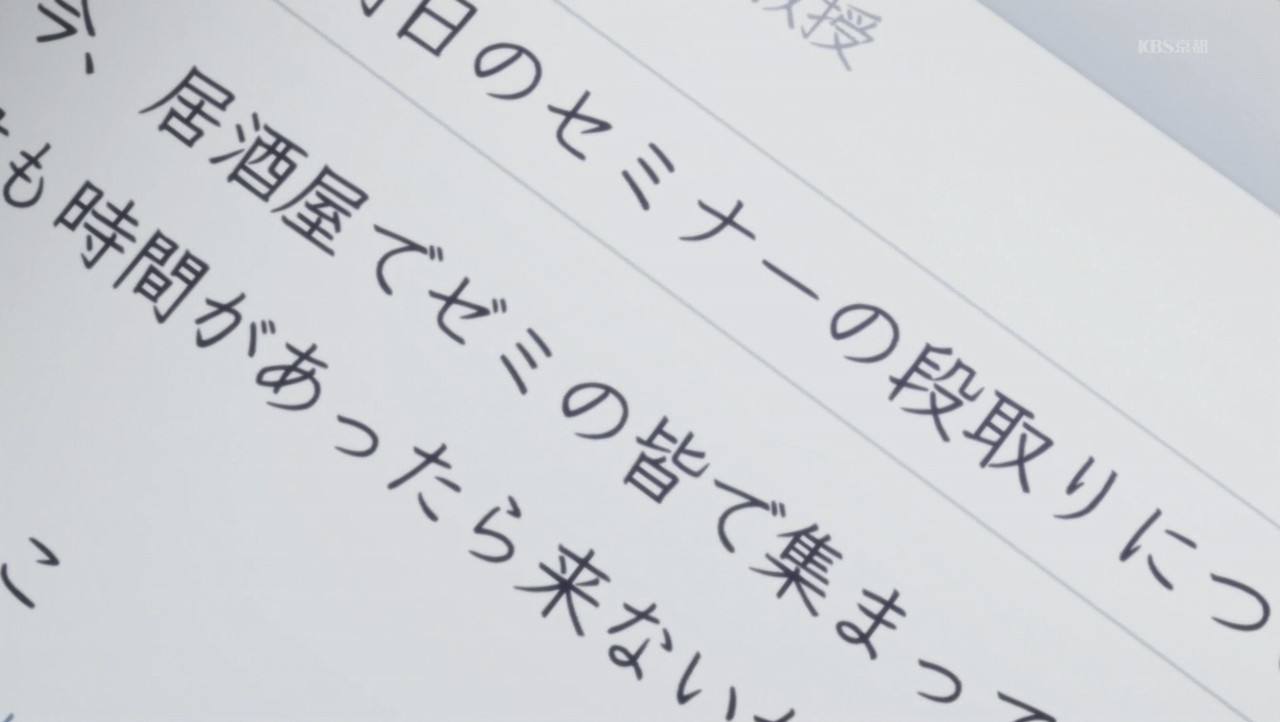 教授
KBS京都
明日のセミナーの段取りにつ
今、居酒屋でゼミの皆で集まって
も時間があったら来ない
こ